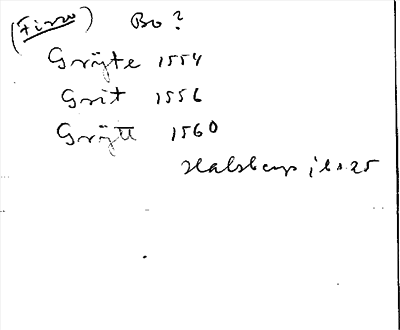 (Finno) Bo?
Gryte 1554
Grit 1556
Grytt 1560
Halsberg jb s. 25